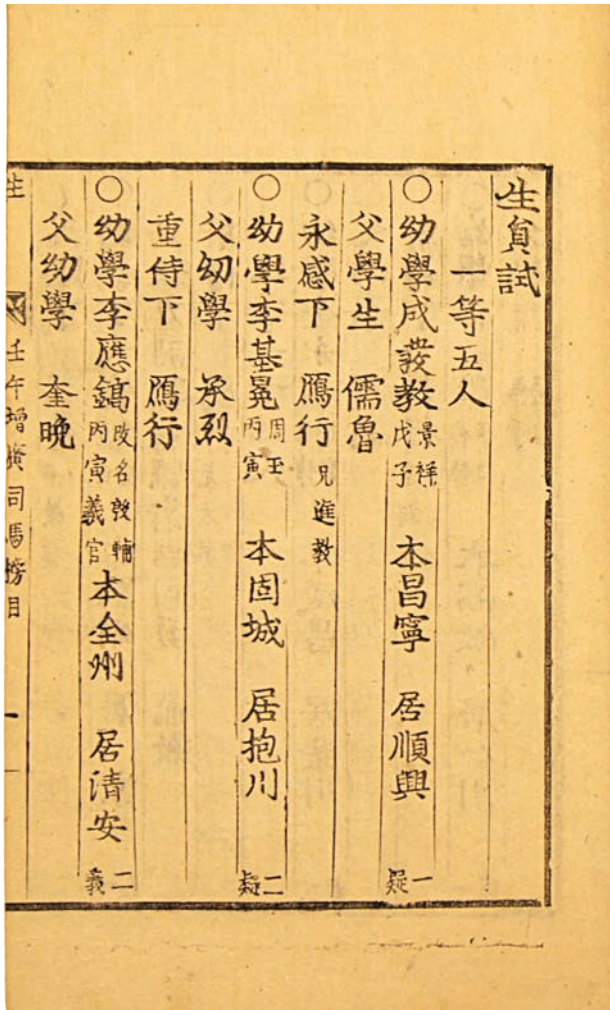 生員試
一等五人
○幼學成夔教 景祥 戊子 本昌寧 居順興 一疑
父學生 儒魯
永感下 鴈行 兄進敎
○幼學李基冕 周玉 丙寅 本固城 居抱川 二疑
父幼學 承烈
重侍下 鴈行
○幼學李應鎬 改名敦輔 丙寅義官 本全州 居淸安 二義
父幼學 奎晩
壬午增廣司馬榜目 一